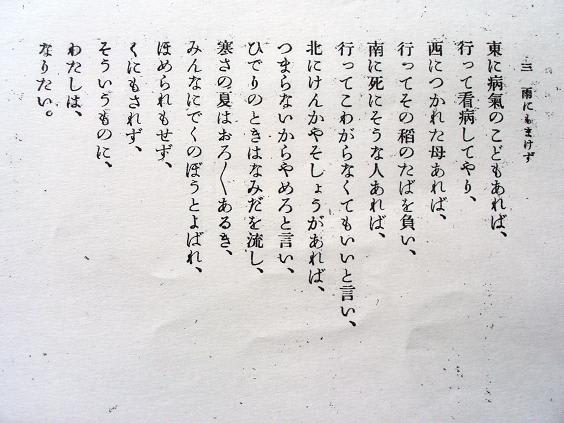 三 雨にもまけず
東に病氣のこどもあれば、
行って看病してやり、
西につかれた母あれば、
行ってその稻のたばを負い、
南に死にそうな人あれば、
行ってこわがらなくてもいいと言い、
北にけんかやそしょうがあれば、
つまらないからやめろと言い、
ひでりのときはなみだを流し、
寒さの夏はおろ〳〵あるき、
みんなにでくのぼうとよばれ、
ほめられもせず、
くにもされず、
そういうものに、
わたしは、
なりたい。